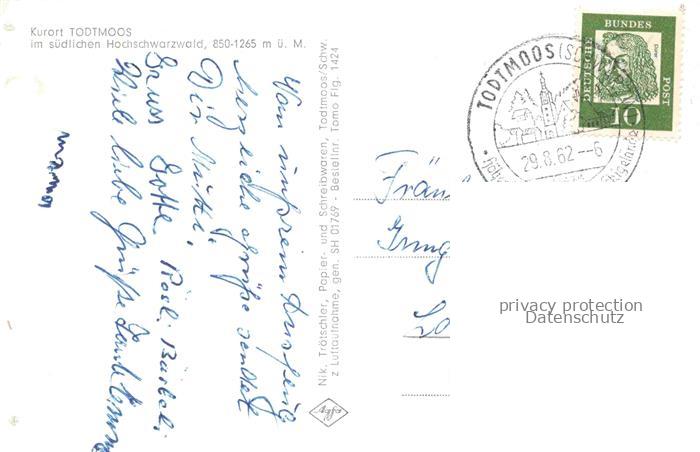 Kurort TODTMOOS
im südlichen Hochschwarzwald, 850-1265 m ü. M.
Von unserem Ausflug
herzliche Grüße sendet
Dir Mutti.
Gruss Gotte Rösli. Bärbeli.
Viele liebe Grüße
Nik. Trötschler, Papier- und Schreibwaren, Todtmoos/Schw.
z Luftaufnahme, gen. SH 01769 - Bestellnr. Tomo Fig. 1424
agfa
TODTMOOS (SC
29.8.62--6
DEUTSCHE
BUNDES
POST
Dürer
10
Fräu
Irmg
privacy protection
Datenschutz